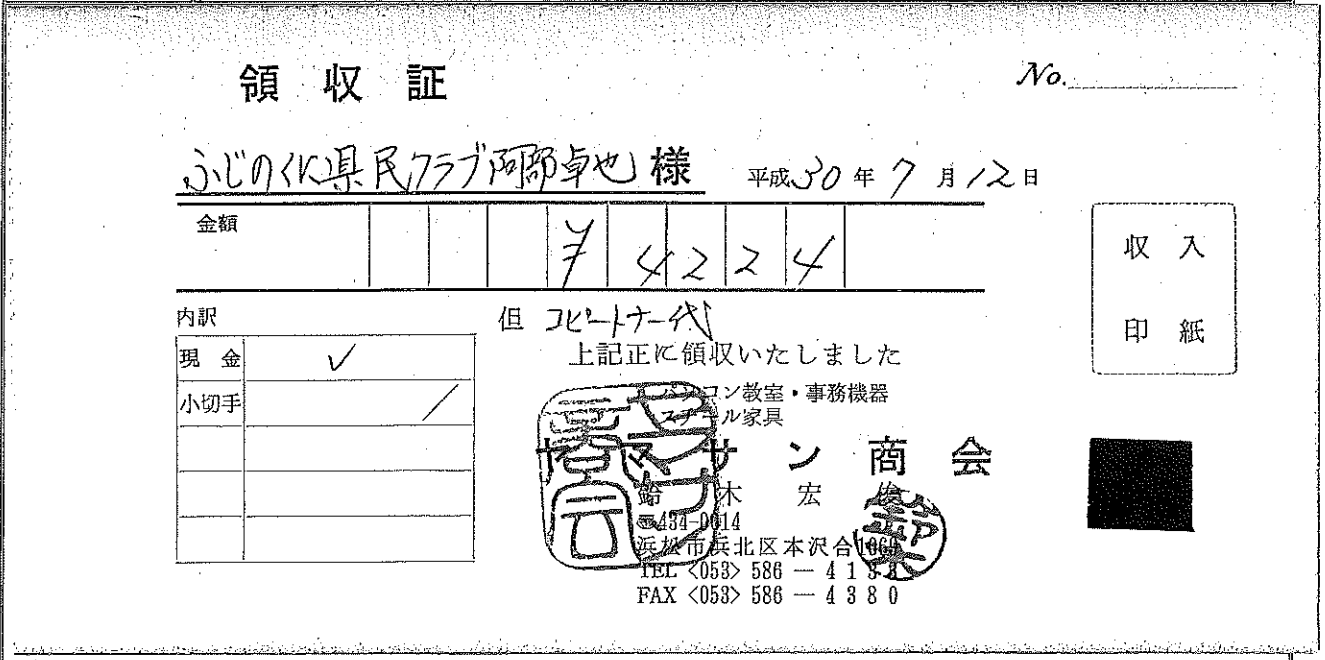 領収証
No.
ふじのくに県民クラブ阿部卓也 様 平成30年7月12日
金額 ¥4224
収入
印紙
内訳
但 コピートナー代
現金 ✓
上記正に領収いたしました
小切手 /
パソコン教室・事務機器
スチール家具
ヤマサン商会
鈴木宏俊
〒434-0014
浜松市浜北区本沢合
TEL <053> 586 ― 4133
FAX <053> 586 ― 4380